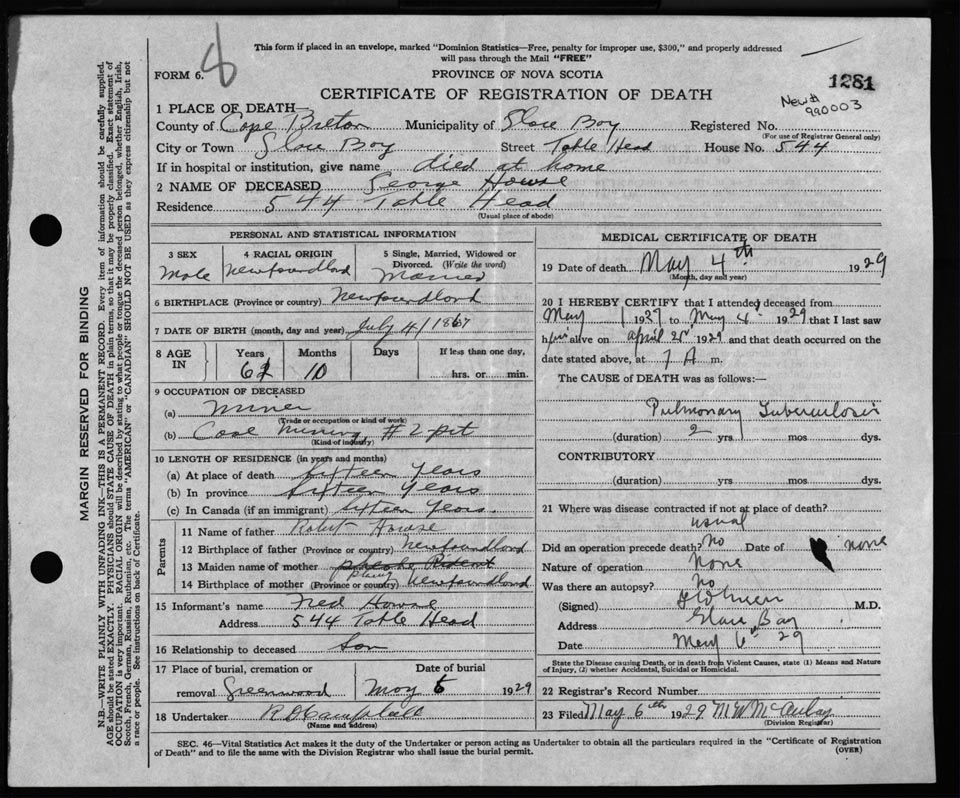 This form if placed in an envelope, marked "Dominion Statistics—Free, penalty for improper use, $300," and properly addressed
will pass through the Mail "FREE"
FORM 6.
6
PROVINCE OF NOVA SCOTIA
1281
CERTIFICATE OF REGISTRATION OF DEATH
New#
990003
1 PLACE OF DEATH—
County of Cape Breton Municipality of Glace Bay Registered No.
(For use of Registrar General only)
City or Town Glace Bay Street Table Head House No. 544
If in hospital or institution, give name died at home
2 NAME OF DECEASED George Howse
Residence 544 Table Head
(Usual place of abode)
PERSONAL AND STATISTICAL INFORMATION
3 SEX
Male
4 RACIAL ORIGIN
Newfoundland
5 Single, Married, Widowed or
Divorced. (Write the word)
Married
6 BIRTHPLACE (Province or country) Newfoundland
7 DATE OF BIRTH (month, day and year) July 4/1867
8 AGE
IN
Years Months Days If less than one day,
61 10 hrs. or min.
9 OCCUPATION OF DECEASED
(a) Miner
(Trade or occupation or kind of work)
(b) Coal Mining #2 pit
(Kind of industry)
10 LENGTH OF RESIDENCE (in years and months)
(a) At place of death fifteen Years
(b) In province fifteen Years
(c) In Canada (if an immigrant) fifteen Years.
Parents
11 Name of father Robert Howse
12 Birthplace of father (Province or country) Newfoundland
13 Maiden name of mother
14 Birthplace of mother (Province or country) Newfoundland
15 Informant's name Fred Howse
Address 544 Table Head
16 Relationship to deceased Son
17 Place of burial, cremation or
removal Greenwood
Date of burial
May 6 1929
18 Undertaker
(Name and address)
MEDICAL CERTIFICATE OF DEATH
19 Date of death May 4th 1929
(Month, day and year)
20 I HEREBY CERTIFY that I attended deceased from
May 1 1927 to May 4th 1929 that I last saw
him alive on April 1929 and that death occurred on the
date stated above, at 7 A m.
The CAUSE of DEATH was as follows:—
Pulmonary Tuberculosis
(duration) 2 yrs. mos dys.
CONTRIBUTORY
(duration) yrs. mos dys.
21 Where was disease contracted if not at place of death?
usual
Did an operation precede death? No Date of none
Nature of operation None
Was there an autopsy? no
(Signed) M.D.
Address Glace Bay
Date May 6th 29
State the Disease causing Death, or in death from Violent Causes, state (1) Means and Nature
of Injury, (2) whether Accidental, Suicidal or Homicidal.
22 Registrar's Record Number
23 Filed May 6th 1929 M W McAulay
(Division Registrar)
SEC. 46—Vital Statistics Act makes it the duty of the Undertaker or person acting as Undertaker to obtain all the particulars required in the "Certificate of Registration
of Death" and to file the same with the Division Registrar who shall issue the burial permit.
(OVER)
MARGIN RESERVED FOR BINDING
N.B.—WRITE PLAINLY WITH UNFADING INK—THIS IS A PERMANENT RECORD. Every item of information should be carefully supplied.
AGE should be stated EXACTLY. PHYSICIANS should STATE CAUSE OF DEATH in plain terms, so that it may be properly classified. Exact statement of
OCCUPATION is very important. RACIAL ORIGIN will be described by stating to what people or tongue the deceased person belonged, whether English, Irish,
Scotch, French, German, Russian, Ruthenian, etc. The terms "AMERICAN" or "CANADIAN" SHOULD NOT BE USED as they express citizenship but not
a race or people. See instructions on back of Certificate.